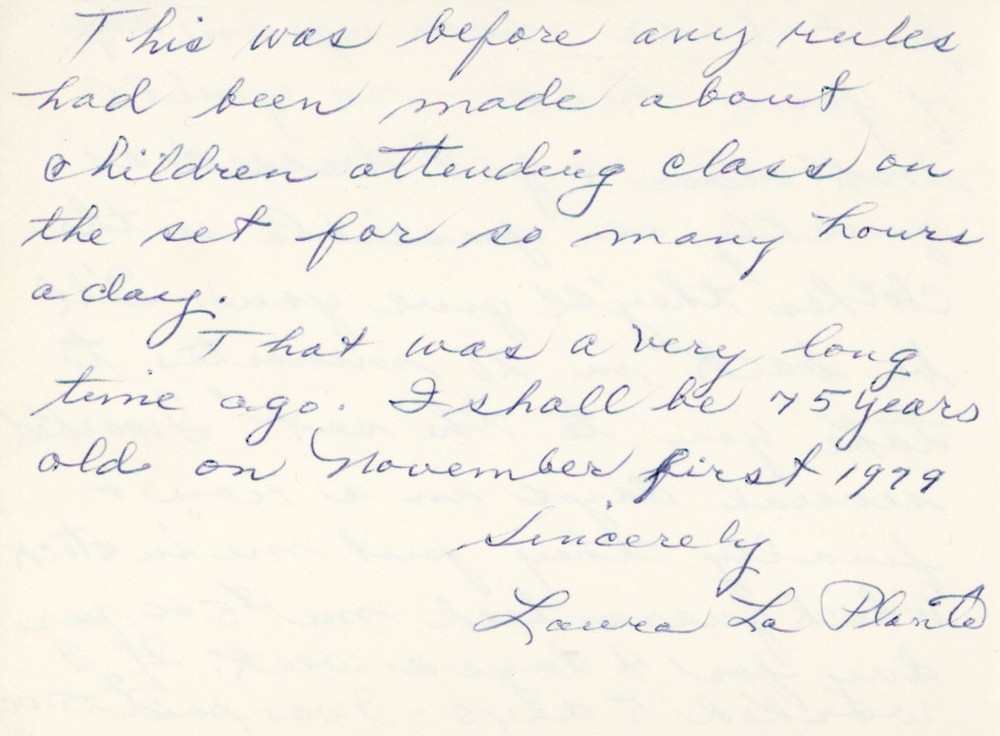 This was before any rules
had been made about
children attending class on
the set for so many hours
a day.
That was a very long
time ago. I shall be 75 years
old on November first 1979
Sincerely
Laura La Plante